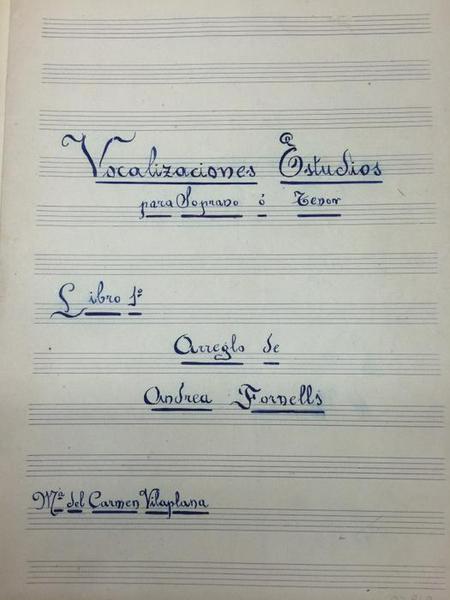 Vocalizaciones Estudios
para Soprano ó Tenor
Libro 1º
Arreglo de
Andrea Fornells
Mª del Carmen Vilaplana